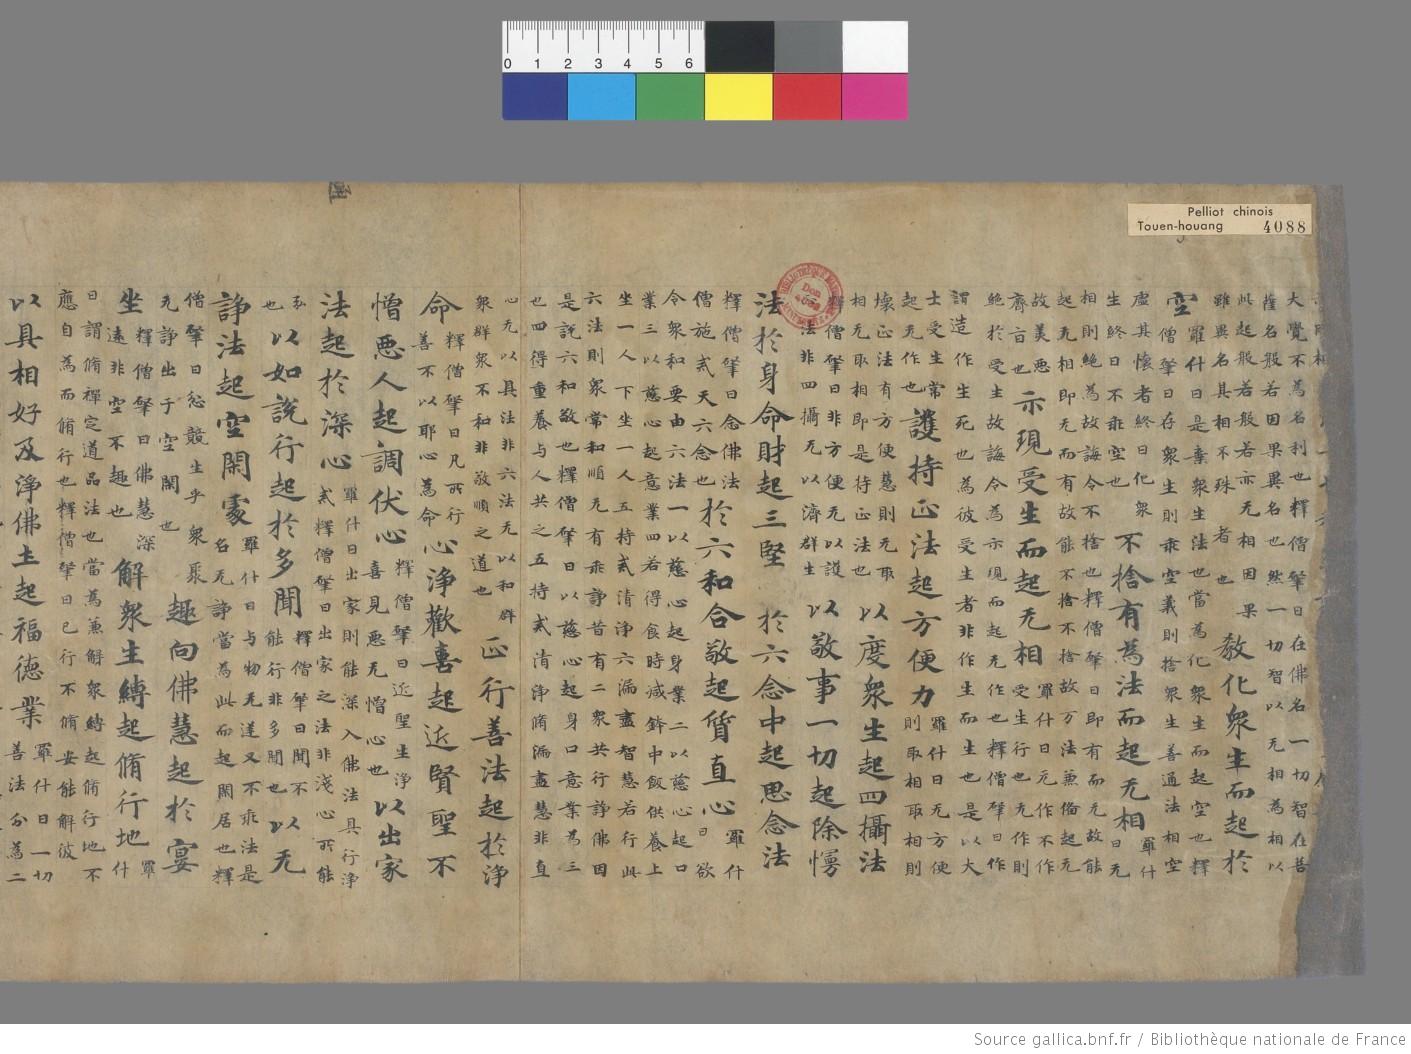 0 1 2 3 4 5 6
Pelliot chinois
Touen-houang 4088
大覺不為名利也釋僧肇曰在佛名一切智在菩
薩名般若因果異名也然一切智以无相為相以
此起般若般若亦无相因果
雖異名其相不殊者也
教化眾生而起於
空
羅什曰是棄衆生法也當為化衆生而起空也釋
僧肇曰存衆生則乖空義則捨衆生善通法相空
虛其懷者終日化衆
生終日不乖空也
不捨有為法而起无相
羅什
曰无
相則絕為故誨令不捨也釋僧肇曰即有而无故能
起无相即无而有故能不捨不捨故万法兼脩起无
故美惡
齊旨也
示現受生而起无相
羅什曰无作不作
受生行也无作則
絕於受生故誨令為示現而起无作也釋僧肇曰作
謂造作生死也為彼受生者非作生而生也是以大
士受生常
起无作也
護持正法起方便力
羅什曰无方便
則取相取相則
壞正法有方便慧則无取
相无取相即是持正法也
以度衆生起四攝法
釋僧肇曰非方便无以護
法非四攝无以濟群生
以敬事一切起除慢
法於身命財起三堅 於六念中起思念法
釋僧肇曰念佛法
僧施戒天六念也
於六和合敬起質直心
羅什
曰欲
令衆和要由六法一以慈心起身業二以慈心起口
業三以慈心起意業四若得食時減鉢中飯供養上
坐一人下坐一人五持戒清淨六漏盡智慧若行此
六法則衆常和順无有乖諍昔有二衆共行諍佛因
是說六和敬也釋僧肇曰以慈心起身口意業為三
也四得重養与人共之五持戒清淨脩漏盡慧非直
心无以具法非六法无以和群
衆群衆不和非敬順之道也
正行善法起於淨
命
釋僧肇曰凡所行
善不以耶心為命
心淨歡喜起近賢聖不
憎惡人起調伏心
釋僧肇曰近聖生淨
喜見惡无憎心也
以出家
法起於深心
羅什曰出家則能深入佛法具行淨
戒釋僧肇曰出家之法非淺心所能
弘
也
以如說行起於多聞
釋僧肇曰聞不
能行非多聞也
以无
諍法起空閑處
羅什曰与物无逆又不乖法是
名无諍當為此而起閑居也釋
僧肇曰忿競生乎衆聚
无諍出于空閑也
趣向佛慧起於宴
坐
釋僧肇曰佛慧深
遠非空不趣也
解衆生縛起脩行地
羅
什
曰謂脩禪定道品法也當為兼解衆縛起脩行地不
應自為而脩行也釋僧肇曰已行不脩安能解彼
以具相好及淨佛土起福德業
羅什曰一切
善法分為二
Source gallica.bnf.fr / Bibliothèque nationale de France